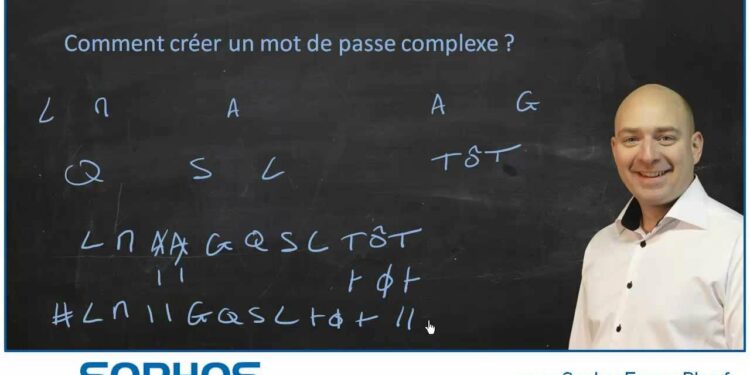 Comment créer un mot de passe complexe ?
L Π A A G
Q S L TÔT
L Π A A G Q S L TÔT
I I + ϕ +
# L Π I I G Q S L + ϕ + //
SOPHOS